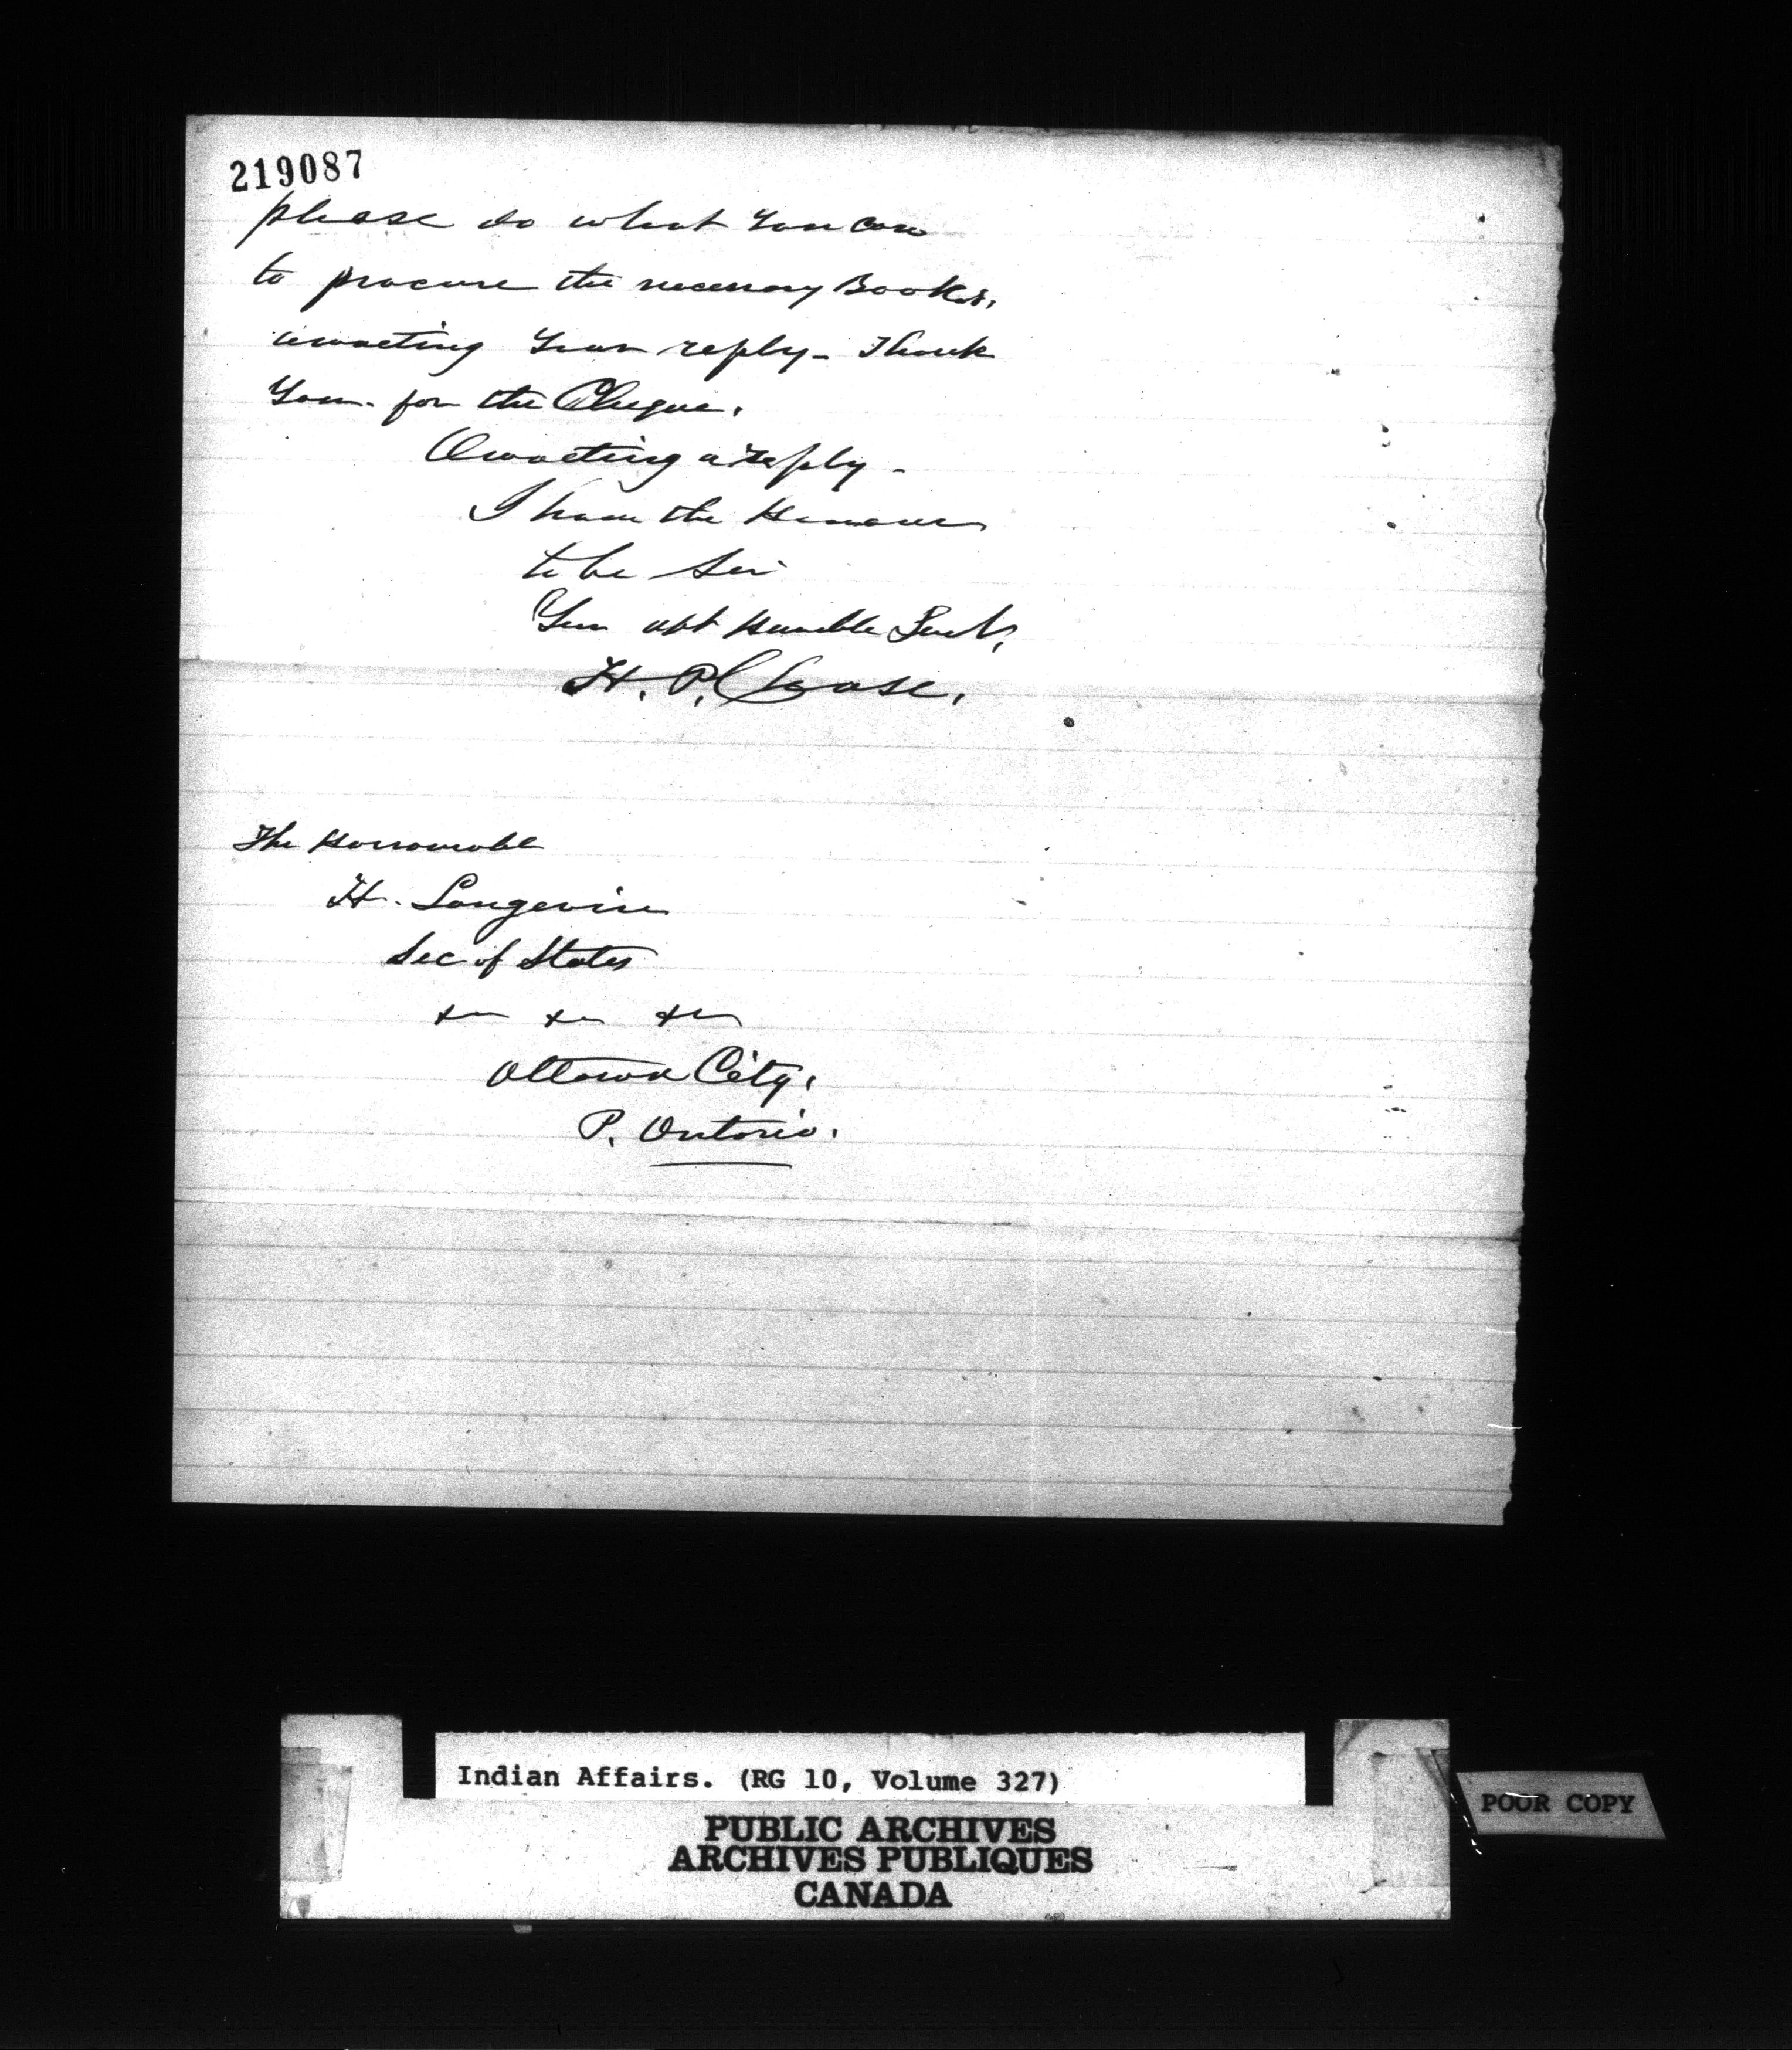 219087
please do what you can
to procure the necessary Books,
awaeting your reply - Thank
You - for the Cheque.
Awaeting a reply -
I have the Honour
to be Sir
Your obt Humble Sevt,
H. P. Chase.
The Honourable
H. Langevine
Sec of States
&c &c &c
Ottawa City,
P. Ontario.
Indian Affairs. (RG 10, Volume 327)
POOR COPY
PUBLIC ARCHIVES
ARCHIVES PUBLIQUES
CANADA